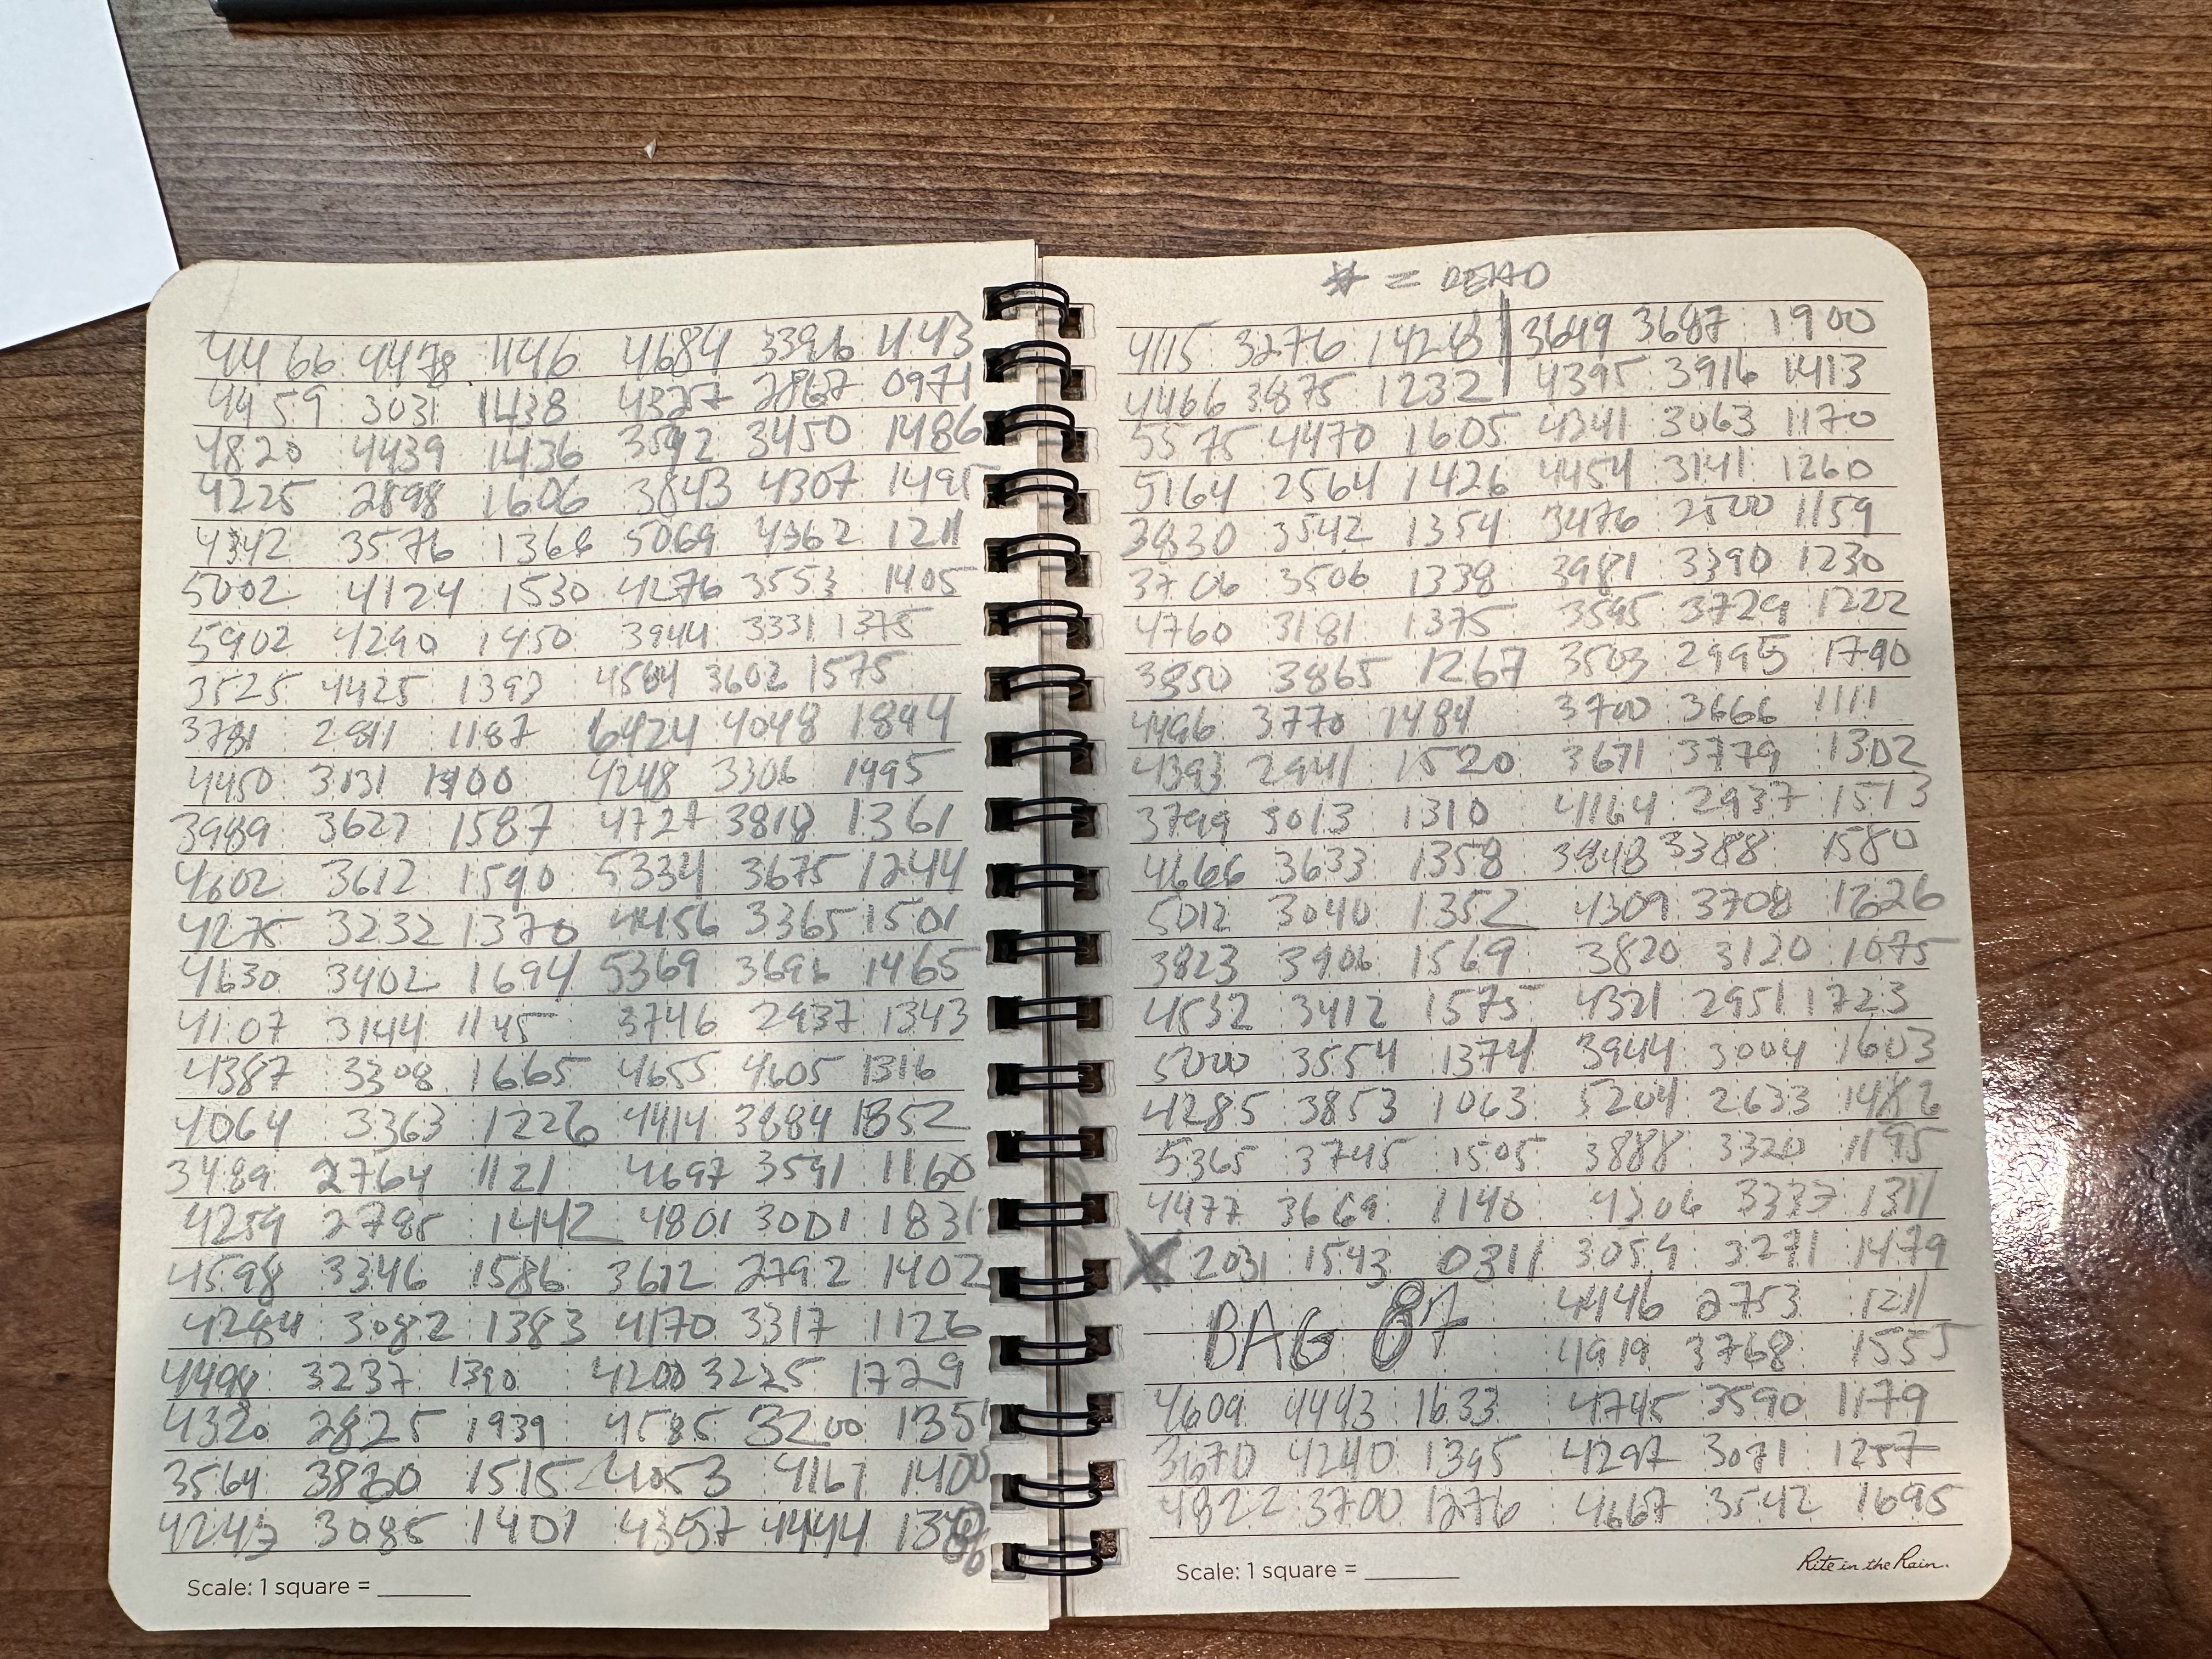 4466 4478 1146 4684 3396 1443
4459 3031 1438 4327 2867 0971
4820 4439 1436 3892 3450 1486
4225 2898 1606 3843 4307 1491
4342 3576 1368 5069 4362 1211
5002 4124 1530 4276 3553 1405
5902 4290 1450 3944 3311 1375
3525 4425 1393 4564 3602 1575
3781 2981 1187 6924 4048 1844
4450 3131 1400 4248 3306 1495
3489 3627 1587 4724 3818 1361
4602 3612 1590 5334 3675 1244
4275 3232 1370 4456 3365 1501
4630 3402 1694 5369 3696 1465
4107 3144 1145 3746 2937 1343
4387 3308 1665 4655 4605 1316
4064 3363 1226 4414 3884 1852
3489 2764 1121 4697 3591 1160
4259 2785 1442 4801 3001 1831
4598 3346 1586 3612 2792 1402
4294 3082 1383 4170 3317 1126
4498 3237 1390 4200 3225 1729
4320 3825 1939 4585 3200 1351
3564 3880 1515 4053 4161 1400
4245 3085 1401 4357 4444 1380
Scale: 1 square =
* = DEMO
4115 3276 1428 3649 3687 1900
4496 3875 1232 4395 3916 1413
5575 4470 1605 4241 3463 1170
5164 2564 1426 4454 3141 1260
3830 3542 1354 3476 2500 1159
3706 3506 1338 3981 3390 1230
4760 3181 1375 3595 3724 1222
3850 3865 1267 3503 2995 1790
4496 3770 1484 3700 3666 1111
4393 2941 1520 3671 3779 1302
3799 3013 1310 4164 2937 1573
4666 3633 1358 3848 3388 1580
5012 3040 1352 4309 3708 1626
3823 3906 1569 3820 3120 1675
4532 3412 1575 4321 2951 1723
5000 3554 1374 3944 3004 1603
4285 3853 1063 5204 2633 1482
5365 3745 1505 3888 3320 1195
4477 3669 1140 4206 3373 1311
X 2031 1543 0311 3054 3271 1479
4146 2753 1211
BAG 87 4919 3768 1555
4604 4443 1633 4745 3590 1179
3670 4240 1345 4297 3091 1257
4822 3700 1876 4467 3542 1695
Scale: 1 square =
Rite in the Rain.